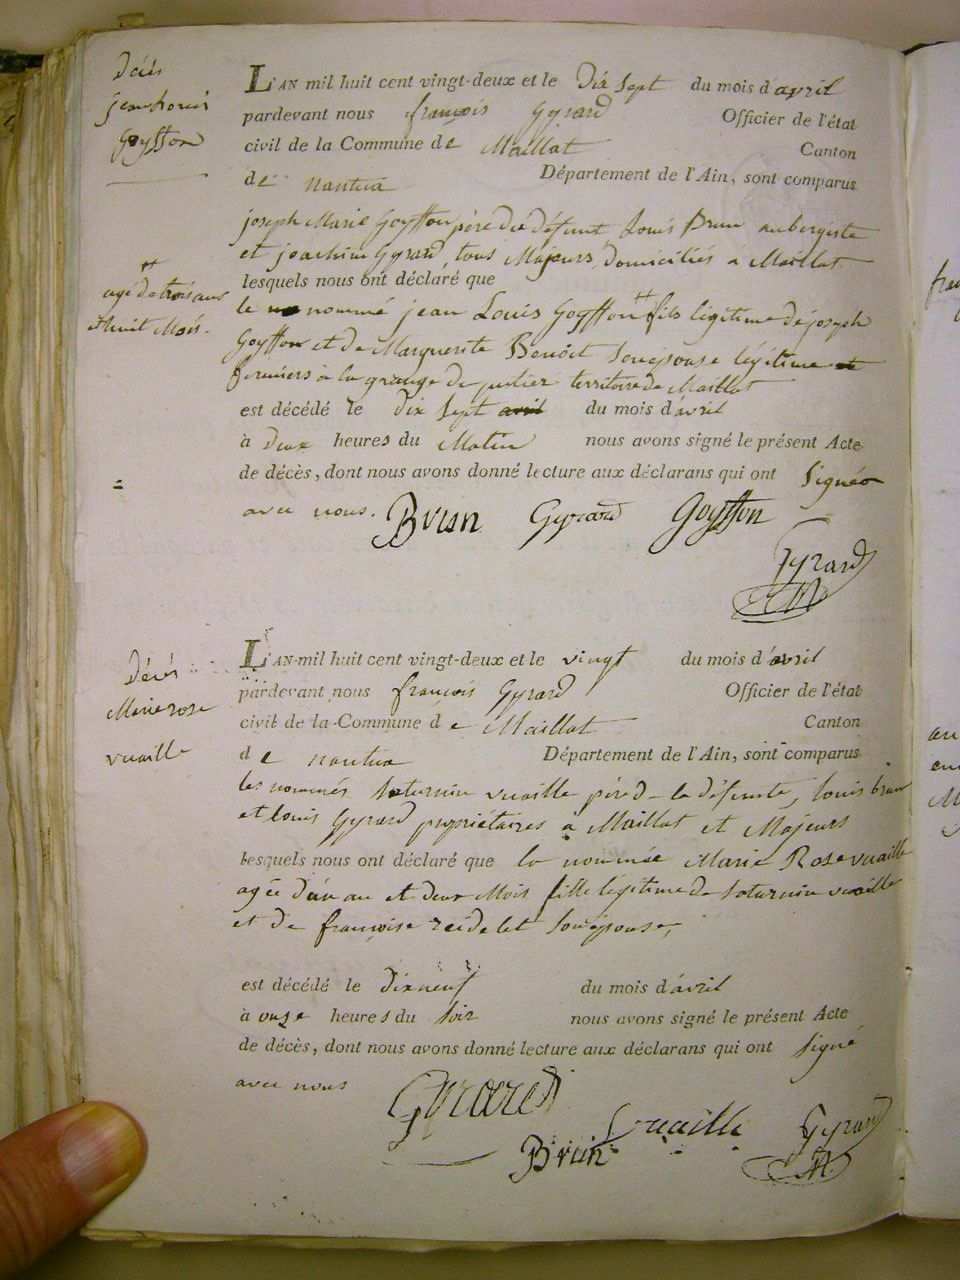 Décés
jean louis
Goyffon
L'AN mil huit cent vingt-deux et le Dix Sept du mois d'avril
pardevant nous françois Gyrard Officier de l'état
civil de la Commune de Maillat Canton
de nantua Département de l'Ain, sont comparus
joseph Marie Goyffon père du défunt Louis Brun aubergiste
et joachim Gyrard, tous Majeurs, Domiciliés à Maillat
lesquels nous ont déclaré que
++
agé de trois ans
et huit Mois.
le nommé jean Louis Goyffon ++ fils légitime de joseph
Goyffon et de Marguerite Benoit Son épouse légitime
fermiers à la grange de territoire de Maillat
est décédé le dix Sept avril du mois d'avril
à Deux heures du Matin nous avons signé le présent Acte
de décès, dont nous avons donné lecture aux déclarans qui ont Signés
avec nous. Brun Gyrard Goyffon
Gyrard
Décés
Marie rose
vuaille
L'AN mil huit cent vingt-deux et le vingt du mois d'avril
pardevant nous françois Gyrard Officier de l'état
civil de la Commune de Maillat Canton
de nantua Département de l'Ain, sont comparus
les nommés Saturnin vuaille père de la défunte, louis brun
et louis Gyrard propriétaires à Maillat et Majeurs
lesquels nous ont déclaré que la nommée Marie Rose vuaille
agée d'un an et deux Mois fille légitime de Saturnin vuaille
et de françoise reidelet Son épouse,
est décédé le dix neuf du mois d'avril
à onze heures du Soir nous avons signé le présent Acte
de décès, dont nous avons donné lecture aux déclarans qui ont Signé
avec nous Gyrard
Brun Vuaille Gyrard